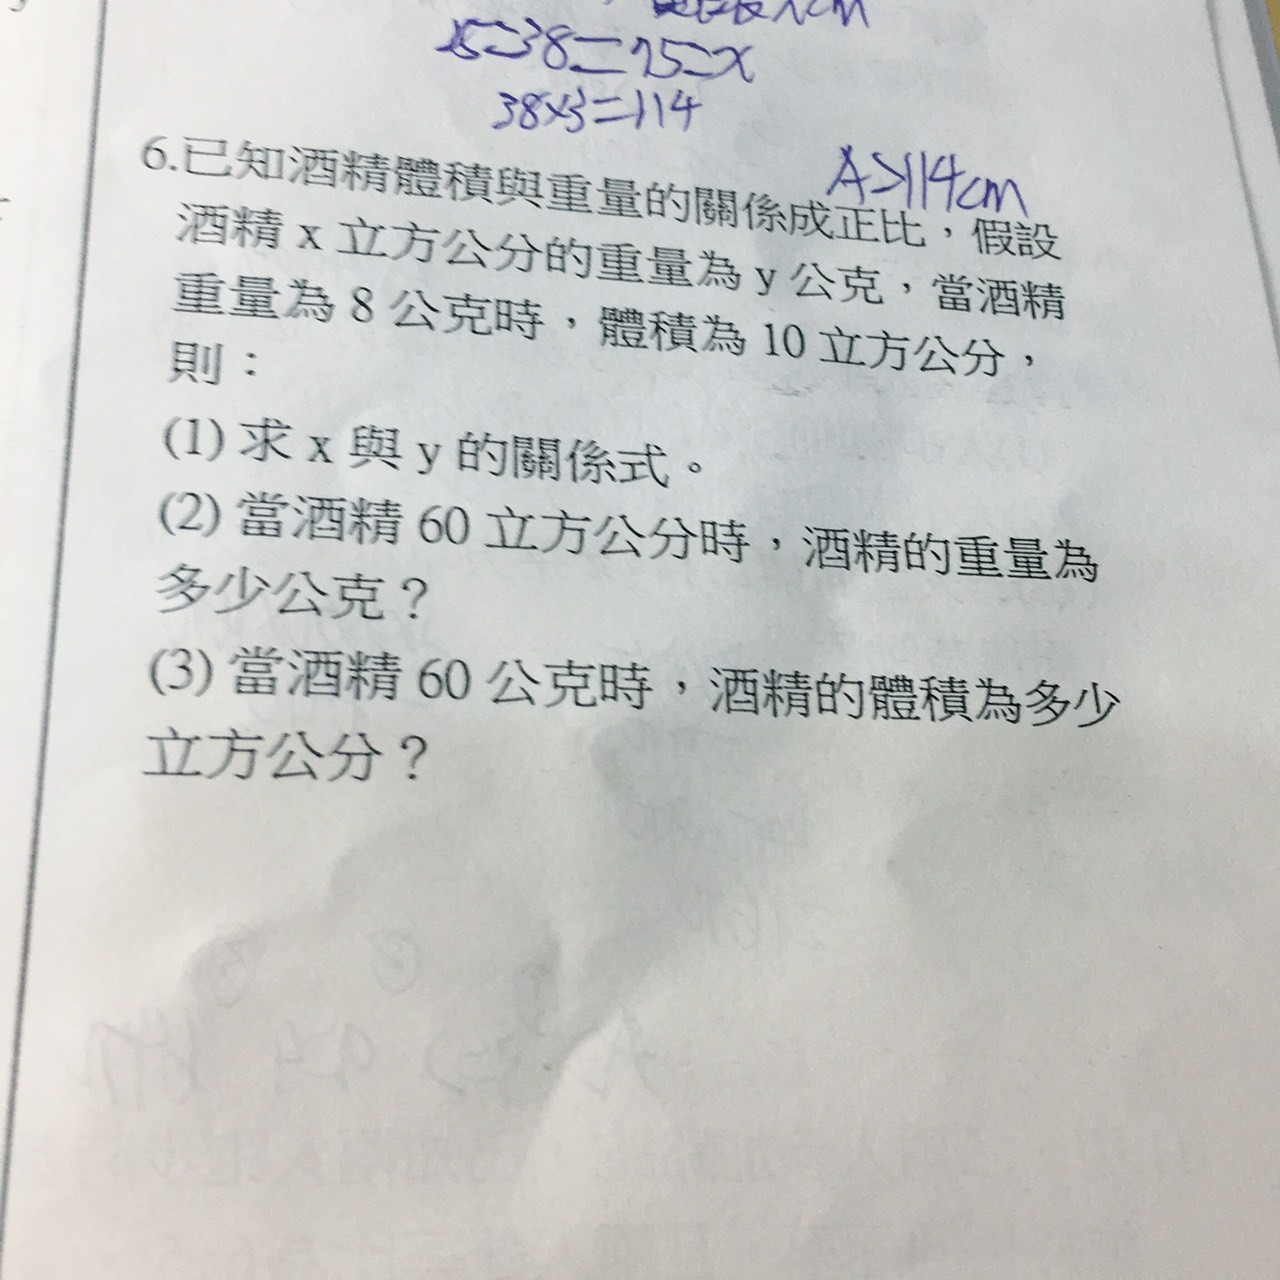 25=38=75=x
38×3=114
A>114cm
6.已知酒精體積與重量的關係成正比，假設
酒精 x 立方公分的重量為 y 公克，當酒精
重量為 8 公克時，體積為 10 立方公分，
則：
(1) 求 x 與 y 的關係式。
(2) 當酒精 60 立方公分時，酒精的重量為
多少公克？
(3) 當酒精 60 公克時，酒精的體積為多少
立方公分？